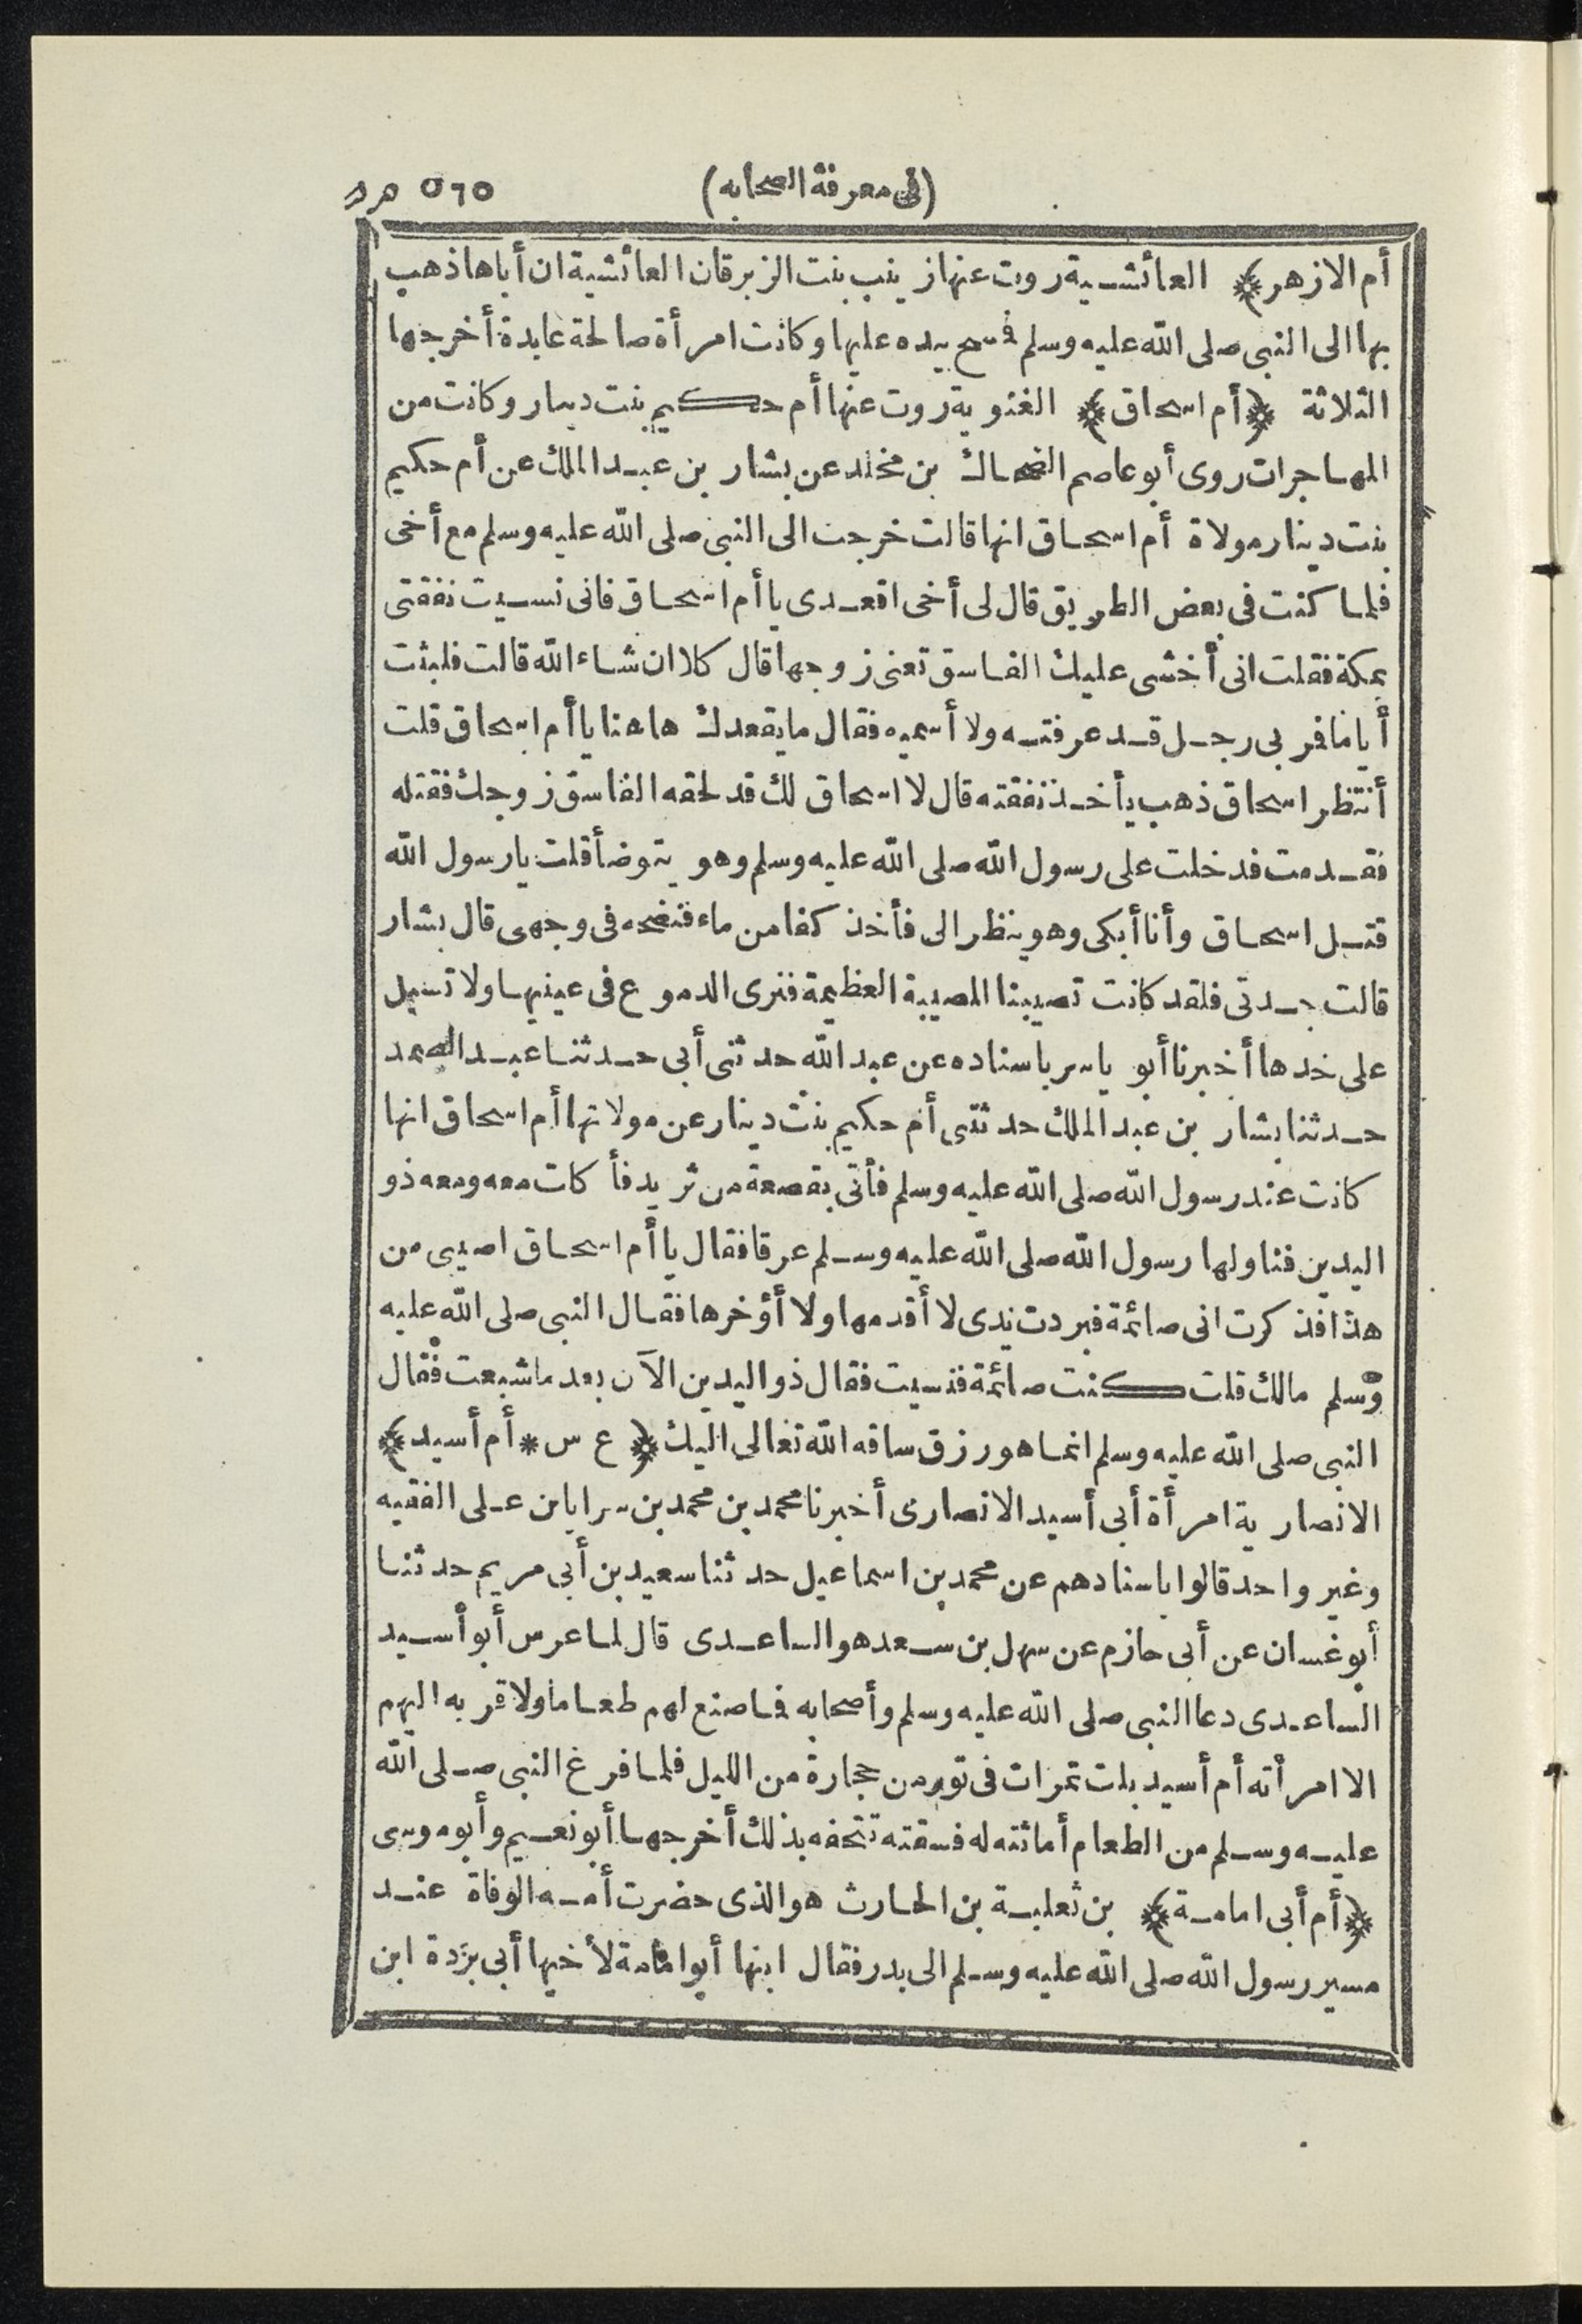 (فى معرفة الصحابه) ٥٦٥
أم الازهر﴾ العائشية روت عنها زينب بنت الزبرقان العائشية ان أباها ذهب
بها الى النبى صلى الله عليه وسلم فمسح بيده عليها وكانت امرأة صالحة عابدة أخرجها
الثلاثة ﴿أم اسحاق﴾ الغنوية روت عنها أم حكيم بنت دينار وكانت من
المهاجرات روى أبو عاصم الضحاك بن مخلد عن بشار بن عبد الملك عن أم حكيم
بنت دينار مولاة أم اسحاق انها قالت خرجت الى النبى صلى الله عليه وسلم مع أخى
فلما كنت فى بعض الطريق قال لى أخى اقعدى يا أم اسحاق فانى نسيت نفقتى
بمكة فقلت انى أخشى عليك الفاسق تعنى زوجها قال كلا ان شاء الله قالت فلبثت
أياما فمر بى رجل قد عرفته ولا أسميه فقال ما يقعدك هاهنا يا أم اسحاق قلت
أنتظر اسحاق ذهب يأخذ نفقته قال لا اسحاق لك قد لحقه الفاسق زوجك فقتله
فقدمت فدخلت على رسول الله صلى الله عليه وسلم وهو يتوضأ قلت يا رسول الله
قتل اسحاق وأنا أبكى وهو ينظر الى فأخذ كفا من ماء فنضحه فى وجهى قال بشار
قالت جدتى فلقد كانت تصيبنا المصيبة العظيمة فنرى الدموع فى عينيها ولا تسيل
على خدها أخبرنا أبو ياسر باسناده عن عبد الله حدثنى أبى حدثنا عبد الصمد
حدثنا بشار بن عبد الملك حدثتنى أم حكيم بنت دينار عن مولاتها أم اسحاق انها
كانت عند رسول الله صلى الله عليه وسلم فأتى بقصعة من ثريد فأكلت معه ومعه ذو
اليدين فناولها رسول الله صلى الله عليه وسلم عرقا فقال يا أم اسحاق اصيبى من
هذا فذكرت انى صائمة فبردت يدى لا أقدمها ولا أؤخرها فقال النبى صلى الله عليه
وسلم مالك قلت كنت صائمة فنسيت فقال ذو اليدين الآن بعد ما شبعت فقال
النبى صلى الله عليه وسلم انما هو رزق ساقه الله تعالى اليك ﴿ع س * أم أسيد﴾
الانصارية امرأة أبى أسيد الانصارى أخبرنا محمد بن محمد بن سرايا بن على الفقيه
وغير واحد قالوا باسنادهم عن محمد بن اسماعيل حدثنا سعيد بن أبى مريم حدثنا
أبو غسان عن أبى حازم عن سهل بن سعد هو الساعدى قال لما عرس أبو أسيد
الساعدى دعا النبى صلى الله عليه وسلم وأصحابه فما صنع لهم طعاما ولا قربه اليهم
الا امرأته أم أسيد بلت تمرات فى تور من حجارة من الليل فلما فرغ النبى صلى الله
عليه وسلم من الطعام أماثته له فسقته تتحفه بذلك أخرجها أبو نعيم وأبو موسى
﴿أم أبى امامة﴾ بن ثعلبة بن الحارث هو الذى حضرت أمه الوفاة عند
مسير رسول الله صلى الله عليه وسلم الى بدر فقال ابنها أبو امامة لأخيها أبى بردة ابن